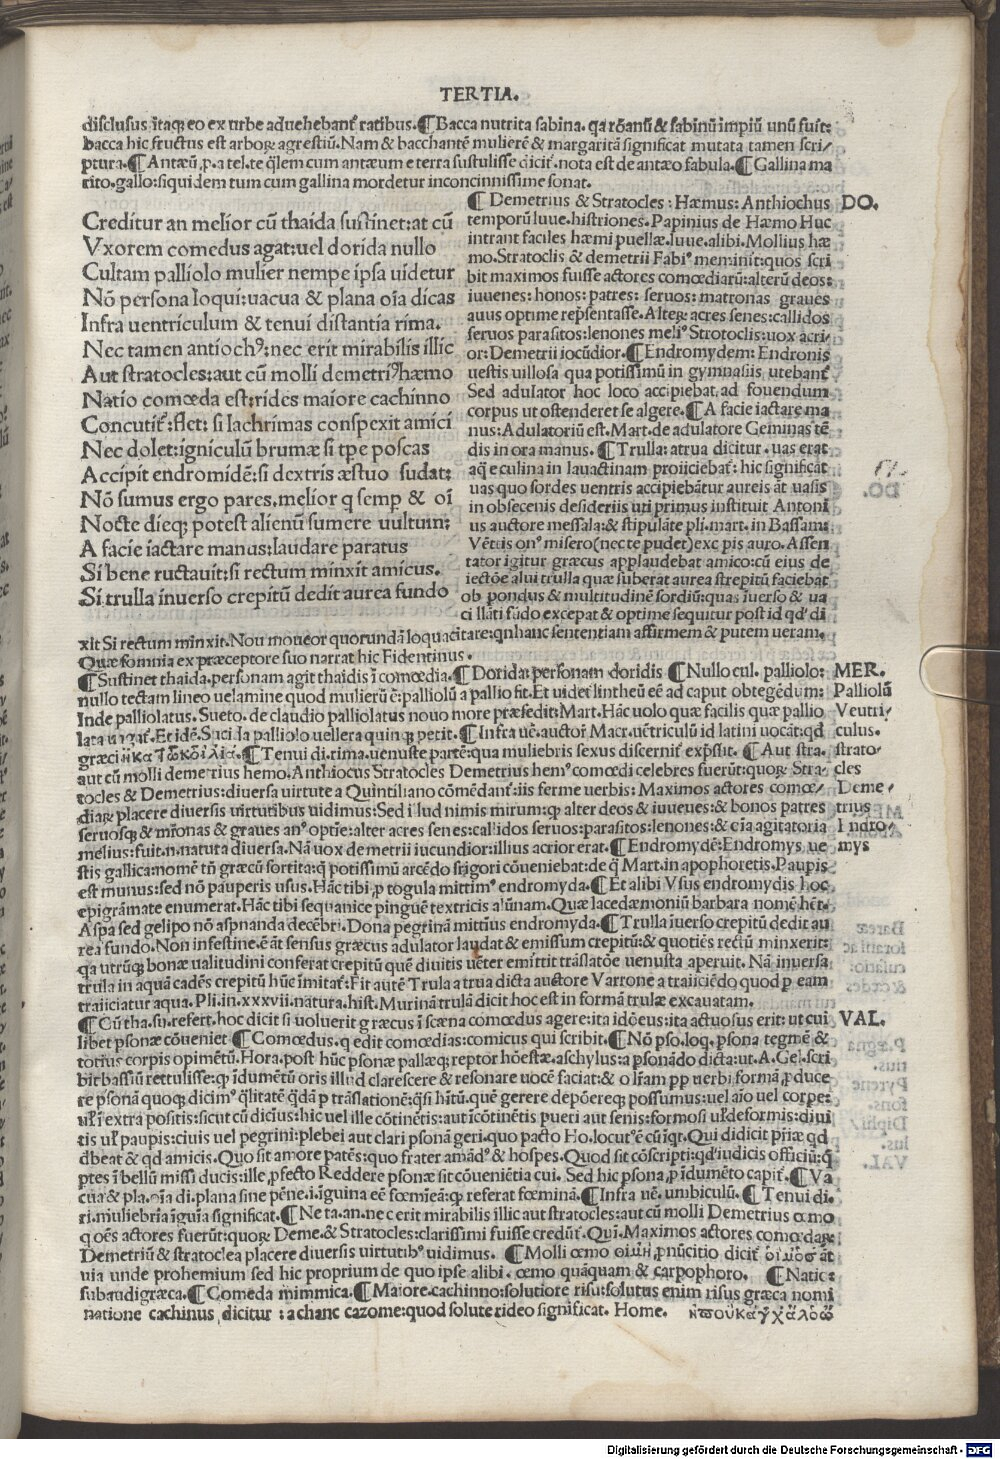 TERTIA.
disclusus itaqȝ eo ex urbe aduehebant᷑ ratibus.¶Bacca nutrita sabina. qa rōanū & sabinū impiū unū fuit:
bacca hic fructus est arboꝝ agrestiū. Nam & bacchantē mulierē & margaritā significat mutata tamen scri/
ptura.¶Antæū, ꝑ. a tel. te q̄lem cum antæum e terra sustulisse dicit᷑. nota est de antæo fabula.¶Gallina ma
rito. gallo: siquidem tum cum gallina mordetur inconcinnissime sonat.
Creditur an melior cū thaida sustinet: at cū
Vxorem comedus agat: uel dorida nullo
Cultam palliolo mulier nempe ipsa uidetur
Nō persona loqui: uacua & plana oīa dicas
Infra uentriculum & tenui distantia rima.
Nec tamen antiochꝰ: nec erit mirabilis illic
Aut stratocles: aut cū molli demetriꝰ hæmo
Natio comœda est: rides maiore cachinno
Concutit᷑: flet: si lachrimas conspexit amici
Nec dolet: igniculū brumæ si tpe poscas
Accipit endromidē: si dextris æstuo sudat:
Nō sumus ergo pares. melior q semp & oī
Nocte dieqȝ potest alienū sumere uultum:
A facie iactare manus: laudare paratus
Si bene ructauit: si rectum minxit amicus.
Si trulla inuerso crepitū dedit aurea fundo
¶Demetrius & Stratocles: Hæmus: Anthiochus DO.
temporū Iuue. histriones. Papinius de Hæmo Huc
intrant faciles hæmi puellæ. Iuue. alibi. Mollius hæ
mo. Stratoclis & demetrii Fabiꝰ meminit: quos scri
bit maximos fuisse actores comœdiarū: alterū deos:
iuuenes: honos: patres: seruos: matronas graues
auus optime rep̄sentasse. Alteꝝ: acres senes: callidos
seruos parasitos: lenones meliꝰ Strotoclis: uox acri/
or: Demetrii iocūdior.¶Endromydem: Endronis
uestis uillosa qua potissimū in gymnasiis utebant᷑
Sed adulator hoc loco accipiebat, ad fouendum
corpus ut ostenderet se algere.¶A facie iactare ma
nus: Adulatoriū est. Mart. de adulatore Geminas tē
dis in ora manus.¶Trulla: atrua dicitur. uas erat
aq̄ e culina in lauactinam proiiciebat᷑: hic significat
uas quo sordes uentris accipiebātur aureis āt uasis
in obscenis desideriis uti primus instituit Antoni
us auctore messala: & stipulāte pli. mart. in Bassam:
Vētris onꝰ misero (nec te pudet) exc pis auro. Assen
tator igitur græcus applaudebat amico: cū eius de
iectōe alui trulla quæ suberat aurea strepitū faciebat
ob pondus & multitudinē sordiū: quas iuerso & ua
ci llāti fūdo excepat & optime sequitur post id qd' di
xit Si rectum minxit. Nou moueor quorundā loquacitare: qnhanc sententiam affirmem & putem ueram.
Quæ somnia ex præceptore suo narrat hic Fidentinus.
¶Sustinet thaida. personam agit thaidis ī comœdia.¶Dorida: personam doridis ¶Nullo cul. palliolo: MER.
nullo tectam lineo uelamine quod mulierū ē: palliolū a pallio fit. Et uidet᷑ lintheū eē ad caput obtegēdum: Palliolū
Inde palliolatus. Sueto. de claudio palliolatus nouo more præsedit: Mart. Hāc uolo quæ facilis quæ pallio Veutri/
lata uagat᷑. Et idē. Sucida palliolo uellera quinqȝ petit.¶Infra uē. auctor Macr. uētriculū id latini uocāt: qd culus.
græci ¶Tenui di. rima. uenuste partē: qua muliebris sexus discernit᷑ exp̄ssit.¶Aut stra. strato/
aut cū molli demetrius hemo. Anthiocus Stratocles Demetrius hemꝰ comœdi celebres fuerūt: quoꝝ Stra/ cles
tocles & Demetrius: diuersa uirtute a Quintiliano cōmēdant᷑: iis ferme uerbis: Maximos actores comœ/ Deme/
diaꝝ placere diuersis uirtutibus uidimus: Sed illud nimis mirum: qȝ alter deos & iuueues: & bonos patres trius
seruosqȝ & mr̄onas & graues anꝰ optīe: alter acres senes: callidos seruos: parasitos: lenones: & oīa agitatoria Indro/
melius: fuit. n. natura diuersa. Nā uox demetrii iucundior: illius acrior erat.¶Endromydē: Endromys ue mys
stis gallica: nomē tn̄ græcū sortita: q̄ potissimū arcēdo frigori cōueniebat: de q̄ Mart. in apophoretis. Paupis
est munus: sed nō pauperis usus. Hāc tibi ꝑ togula mittimꝰ endromyda.¶Et alibi Vsus endromydis hoc
epigrāmate enumerat. Hāc tibi sequanice pinguē textricis alūnam. Quæ lacedæmoniū barbara nomē hēt.
Aspa sed gelipo nō aspnanda decēbri. Dona pegrinā mittius endromyda.¶Trulla īuerso crepitū dedit au
rea fundo. Non infestine. ē āt sensus græcus adulator laudat & emissum crepitū: & quotiēs rectū minxerit:
qa utrūqȝ bonæ ualitudini conferat crepitū quē diuitis uēter emittit trāslatōe uenusta aperuit. Nā inuersa
trula in aquā cadēs crepitū hūc īmitat᷑: Fit autē Trula a trua dicta auctore Varrone a traiiciēdo quod ꝑ eam
traiiciatur aqua. Pli. in. xxxvii. natura. hist. Murinā trulā dicit hoc est in formā trulæ excauatam.
¶Cū tha. su. refert. hoc dicit si uoluerit græcus ī scæna comœdus agere: ita idōeus: ita actuosus erit: ut cui VAL.
libet psonæ cōueniet ¶Comœdus. q edit comœdias: comicus qui scribit.¶Nō pso. loq. psona tegmē &
totius corpis opimētū. Hora. post hūc psonæ pallæqȝ reptor hōestæ. æschylus: a psonādo dicta: ut. A. Gel. scri
bit bassiū rettulisse: qȝ īdumētū oris illud clarescere & resonare uocē faciat: & o lr̄am pp uerbi formā ꝑduce
re psonā quoqȝ dicimꝰ q̄litatē qdā p trāslationē: q̄si hītū. quē gerere depōereqȝ possumus: uel aīo uel corpe:
ul'ī extra positis: sicut cū dicīus: hic uel ille cōtinētis: aut īcōtinētis pueri aut senis: formosi ul'deformis: diui
tis ul'paupis: ciuis uel pegrini: plebei aut clari psonā geri. quo pacto Ho. locut'ē cū īqt. Qui didicit pr̄iæ qd
dbeat & qd amicis. Quo sit amore patēs: quo frater amād' & hospes. Quod sit cōscripti: qd'iudicis officiū: q̄
ptes ībellū missi ducis: ille, pfecto Reddere psonæ sit cōueniētia cui. Sed hic psona, ꝑ īdumēto capit᷑.¶Va
cua & pla. oīa di. plana sine pēne. i. īguina eē fœmīeā: qȝ referat fœminā.¶Infra uē. umbiculū.¶Tenui di.
ri. muliebria īguia significat.¶Ne ta. an. nec erit mirabilis illic aut stratocles: aut cū molli Demetrius œmo
q oēs actores fuerūt: quoꝝ Deme. & Stratocles: clarissimi fuisse credūt᷑. Qui. Maximos actores comœdiaꝝ
Demetriū & stratoclea placere diuersis uirtutibꝰ uidimus. ¶Molli œmo ꝑnūcitio dicit᷑ āt
uia unde prohemium sed hic proprium de quo ipse alibi. œmo quāquam & carpophoro. ¶Natic:
subaudigræca.¶Comeda mimmica.¶Maiore. cachinno: solutiore risu: solutus enim risus græca nomi
natione cachinus dicitur: achanc cazome: quod solute rideo significat. Home.
Digitalisierung gefördert durch die Deutsche Forschungsgemeinschaft - DFG